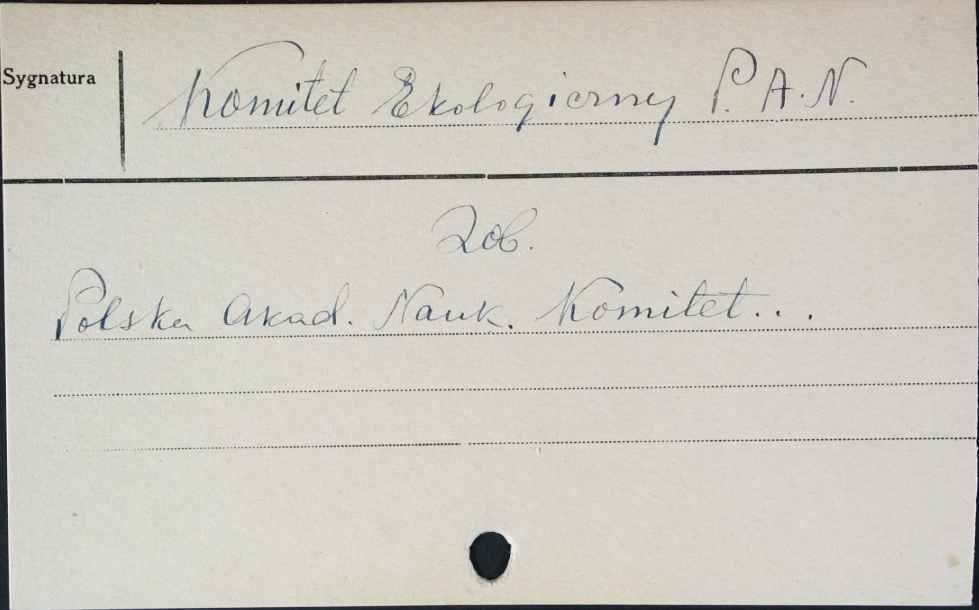 Sygnatura
Komitet Ekologiczny P.A.N.
Zob.
Polska Akad. Nauk. Komitet...